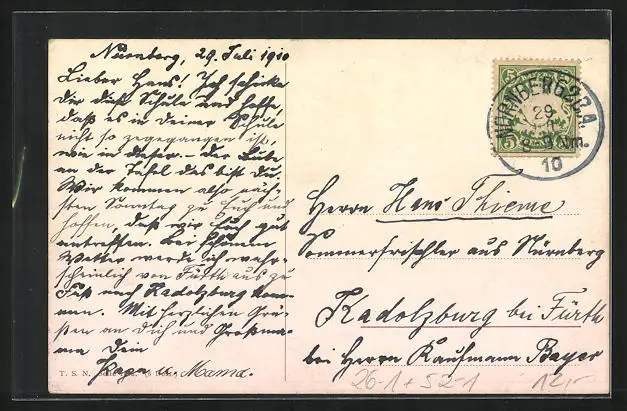 Nürnberg, 29. Juli 1910
Lieber Hans! Ich schicke
Dir diese Schule und hoffe,
daß es in Deiner Schule
nicht so zugegangen ist,
wie in dieser. – Der Bube
an der Tafel das bist Du.
Wir kommen also näch-
sten Sonntag zu Euch und
hoffen, daß wir Euch gut
antreffen. Bei schönem
Wetter werde ich wahr-
scheinlich von Fürth aus zu
Fuß nach Kadolzburg kom-
men. Mit herzlichen Grü-
ßen an Dich und Großma-
ma Dein
Papa u. Mama.
T. S. N.
5
5
NÜRNBERG 2 B.Z.A.
29
8-9 Nm.
10
Herrn Hans Thieme
Sommerfrischler aus Nürnberg
Kadolzburg bei Fürth
bei Herrn Kaufmann Bayer
26-1 + 52-1
12,-